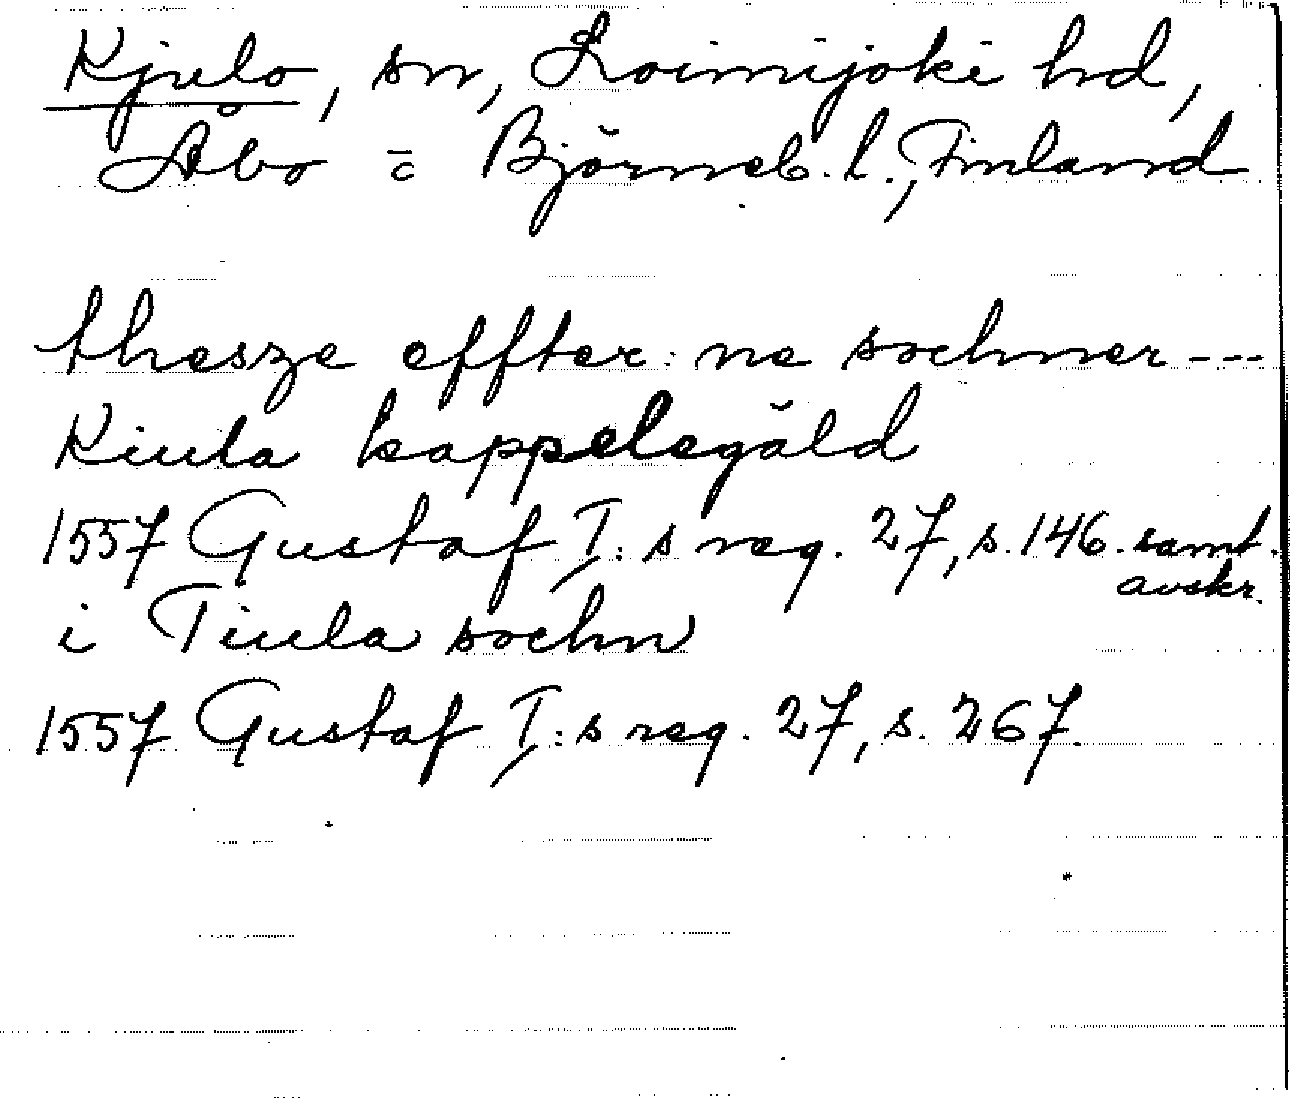 Kjulo, sn, Loimijoki hd,
Åbo o Björneb. l., Finland
thesze effter: ne sochner ---
Kiula kappelegäld
1557 Gustaf I: s reg. 27, s. 146. samt.
avskr.
i Tiula sochn
1557 Gustaf I: s reg. 27, s. 267.